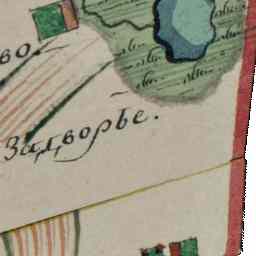 во
Задворье.